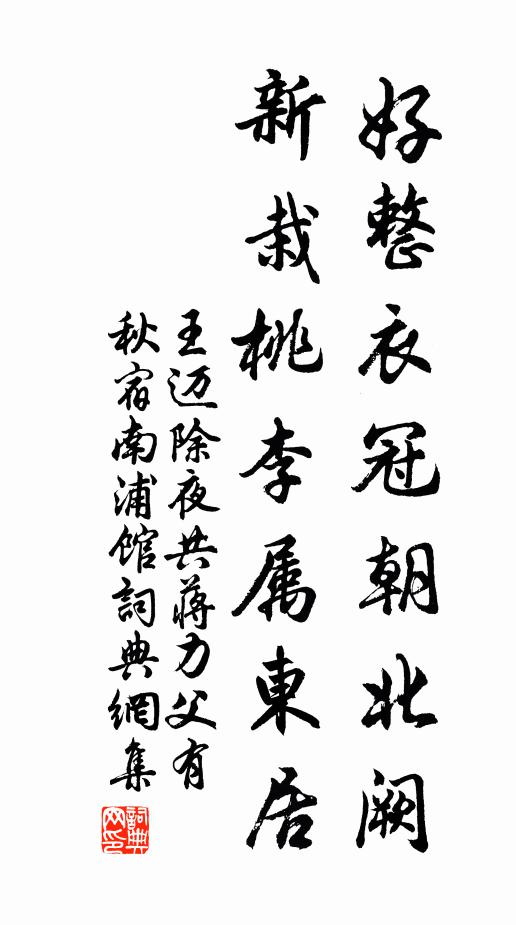 好整衣冠朝北阙
新栽桃李属東居
王迈除夜共蒋力父有
秋宿南浦馆詞典網集
詞典
网印